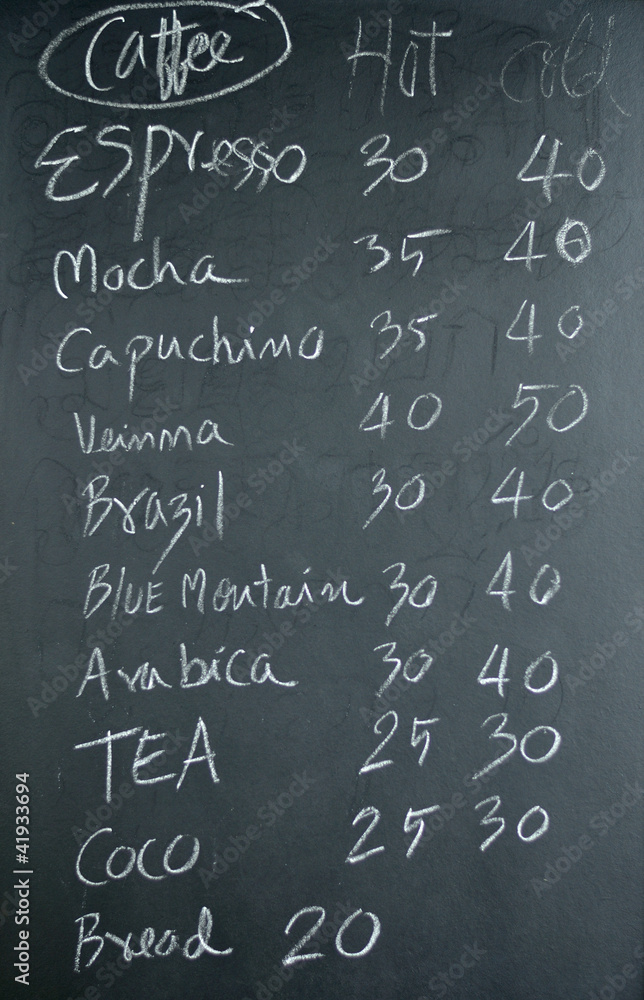 Caffee Hot Cold
Espresso 30 40
Mocha 35 40
Capuchino 35 40
Veinna 40 50
Brazil 30 40
BLUE Mountain 30 40
Arabica 30 40
TEA 25 30
Coco 25 30
Bread 20
Adobe Stock | #41933694